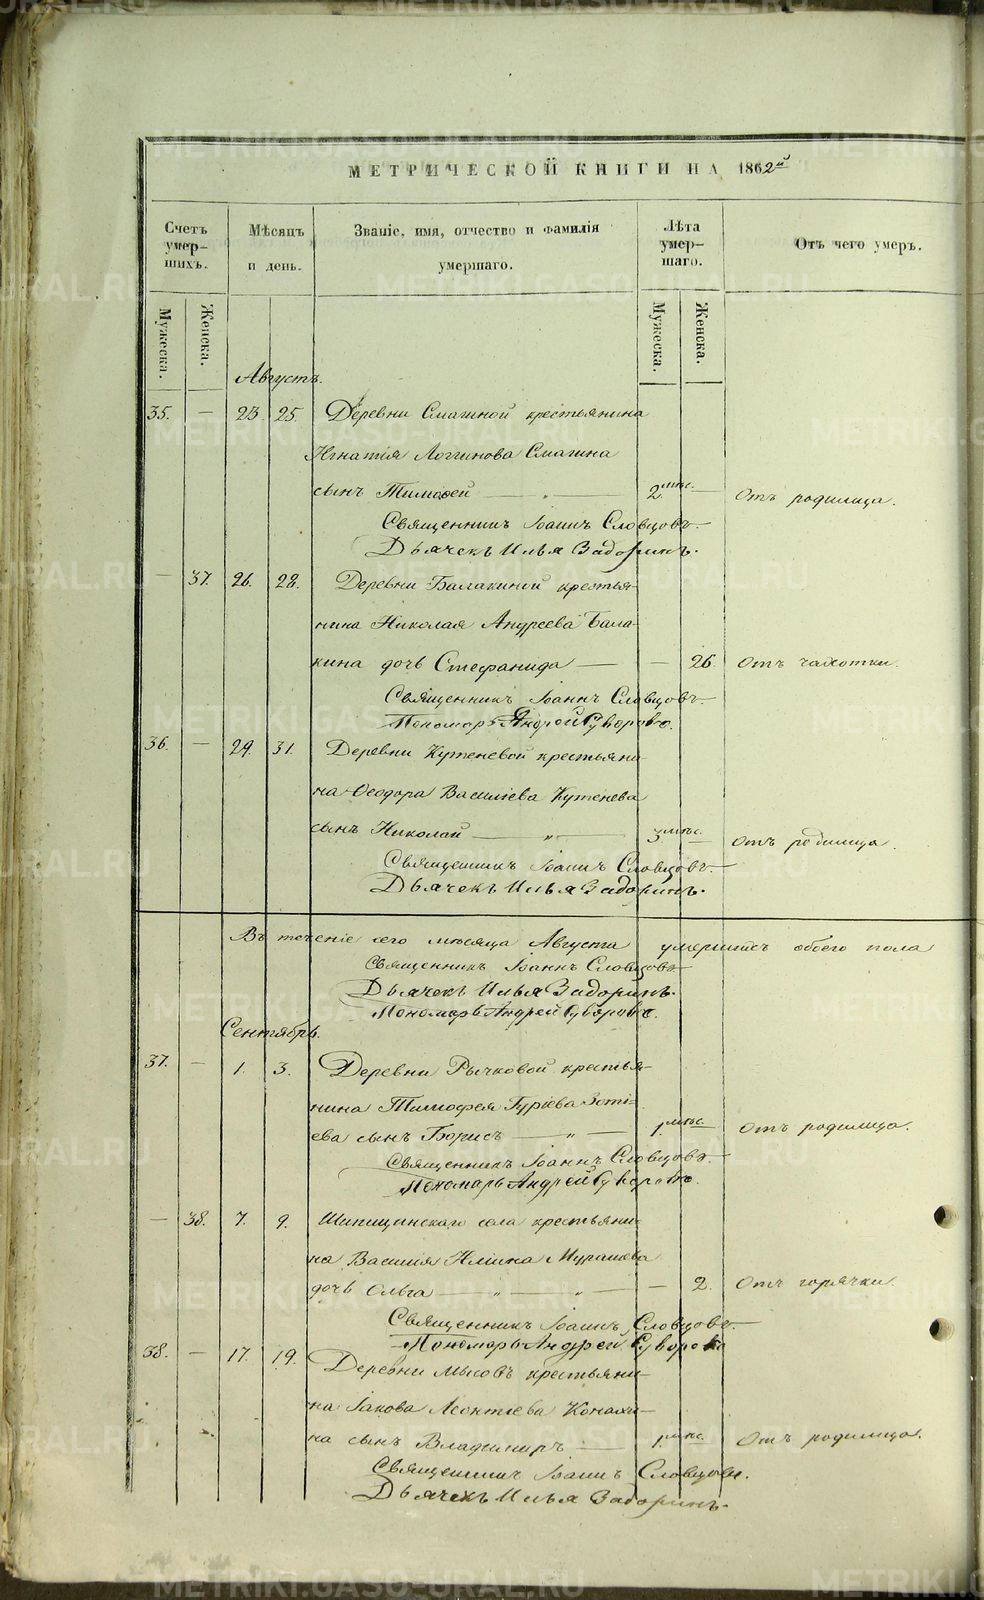 МЕТРИЧЕСКОЙ КНИГИ НА 1862й
Счетъ умер-шихъ.
Мѣсяцъ и день.
Званіе, имя, отчество и фамилія умершаго.
Лѣта умер-шаго.
Отъ чего умеръ.
Мужеска.
Женска.
Мужеска.
Женска.
Августъ.
35. — 23 25. Деревни Смагиной крестьянина
Игнатія Логгинова Смагина
сынъ Тимоѳей — „ — 2 мѣс. — Отъ родимца.
Священникъ Іоаннъ Словцовъ.
Дьячекъ Илья Задоринъ.
— 37. 26. 28. Деревни Балакиной крестья-
нина Николая Андреева Бала-
кина дочь Стефанида — — 26. Отъ чахотки.
Священникъ Іоаннъ Словцовъ.
Пономарь Андрей Суворовъ.
36. — 29. 31. Деревни Кутеневой крестьяни-
на Ѳеодора Василіева Кутенева
сынъ Николай — „ — 3 мѣс. — Отъ родимца.
Священникъ Іоаннъ Словцовъ.
Дьячекъ Илья Задоринъ.
Въ теченіе сего мѣсяца Августа умершихъ обоего пола
Священникъ Іоаннъ Словцовъ
Дьячекъ Илья Задоринъ.
Пономарь Андрей Суворовъ.
Сентябрь.
37. — 1. 3. Деревни Рычковой крестья-
нина Тимофея Гуріева Зоті-
ева сынъ Борисъ — „ — 1. мѣс. Отъ родимца.
Священникъ Іоаннъ Словцовъ.
Пономарь Андрей Суворовъ.
— 38. 7. 9. Шипицинскаго села крестьяни-
на Василія Ильина
дочь Ольга — „ — „ — — 2. Отъ горячки.
Священникъ Іоаннъ Словцовъ.
Пономарь Андрей Суворовъ
38. — 17. 19. Деревни Мысовъ крестьяни-
на Іакова Леонтіева
на сынъ Владимиръ — 1. мѣс. Отъ родимца.
Священникъ Іоаннъ Словцовъ.
Дьячекъ Илья Задоринъ.
METRIKI.GASO-URAL.RU